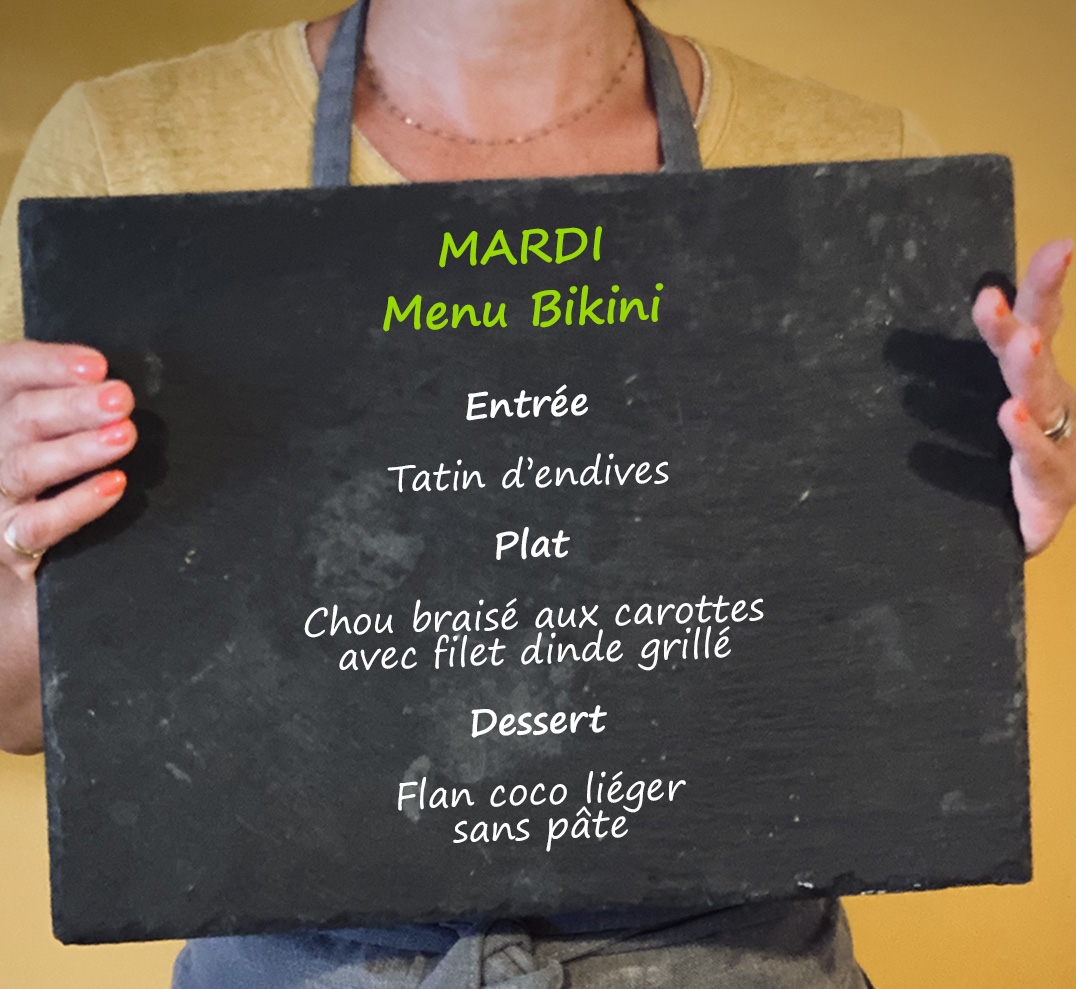 MARDI
Menu Bikini
Entrée
Tatin d’endives
Plat
Chou braisé aux carottes
avec filet dinde grillé
Dessert
Flan coco liéger
sans pâte